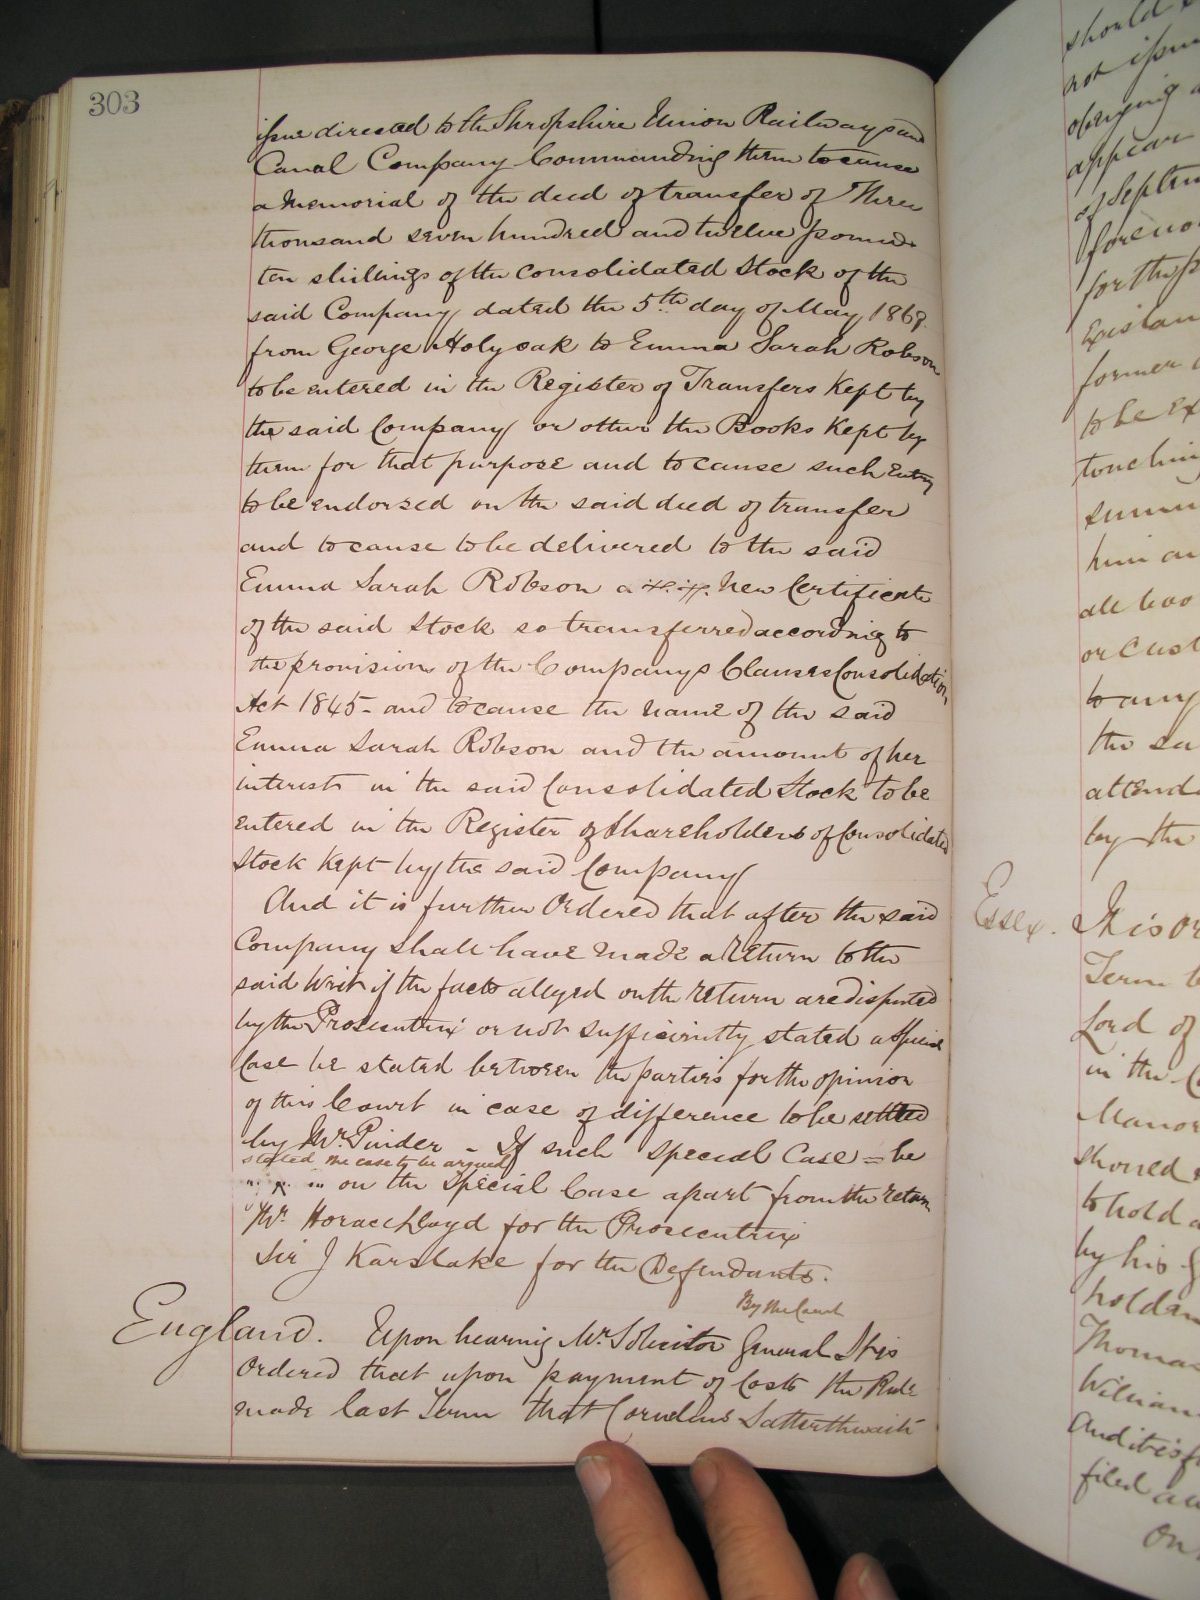 303
issue directed to the Shropshire Union Railways and
Canal Company Commanding them to cause
a Memorial of the deed of transfer of Three
thousand seven hundred and twelve pounds
ten shillings of the Consolidated Stock of the
said Company dated the 5th day of May 1869
from George Holyoak to Emma Sarah Robson
to be entered in the Register of Transfers Kept by
the said Company or other the Books Kept by
them for that purpose and to cause such Entry
to be endorsed on the said deed of transfer
and to cause to be delivered to the said
Emma Sarah Robson a New Certificate
of the said Stock so transferred according to
the provisions of the Companys Clauses Consolidation
Act 1845 - and to cause the name of the said
Emma Sarah Robson and the amount of her
interest in the said Consolidated Stock to be
entered in the Register of Shareholders of Consolidated
Stock Kept by the said Company
And it is further Ordered that after the said
Company shall have made a Return to the
said Writ if the facts alleged on the return are disputed
by the Prosecutrix or not sufficiently stated a Special
Case be stated between the parties for the opinion
of this Court in case of difference to be settled
by Mr. Pinder - If such Special Case = be
stated the case to be argued
on the Special Case apart from the return
Mr. Horace Lloyd for the Prosecutrix
Sir J Karslake for the Defendants.
By the Court
England. Upon hearing Mr. Solicitor General It is
Ordered that upon payment of Costs the Rule
made last Term that Cornelius Satterthwaite
should
not issue
obeying
appear
of Septem
forenoo
for the p
Existan
former
to be Ex
touching
summ
him an
all boo
or Cust
to any
the sa
attend
by the
Essex. It is Or
Term
Lord of
in the
Manor
should
to hold a
by his
holden
Thomas
William
And it is f
filed
On